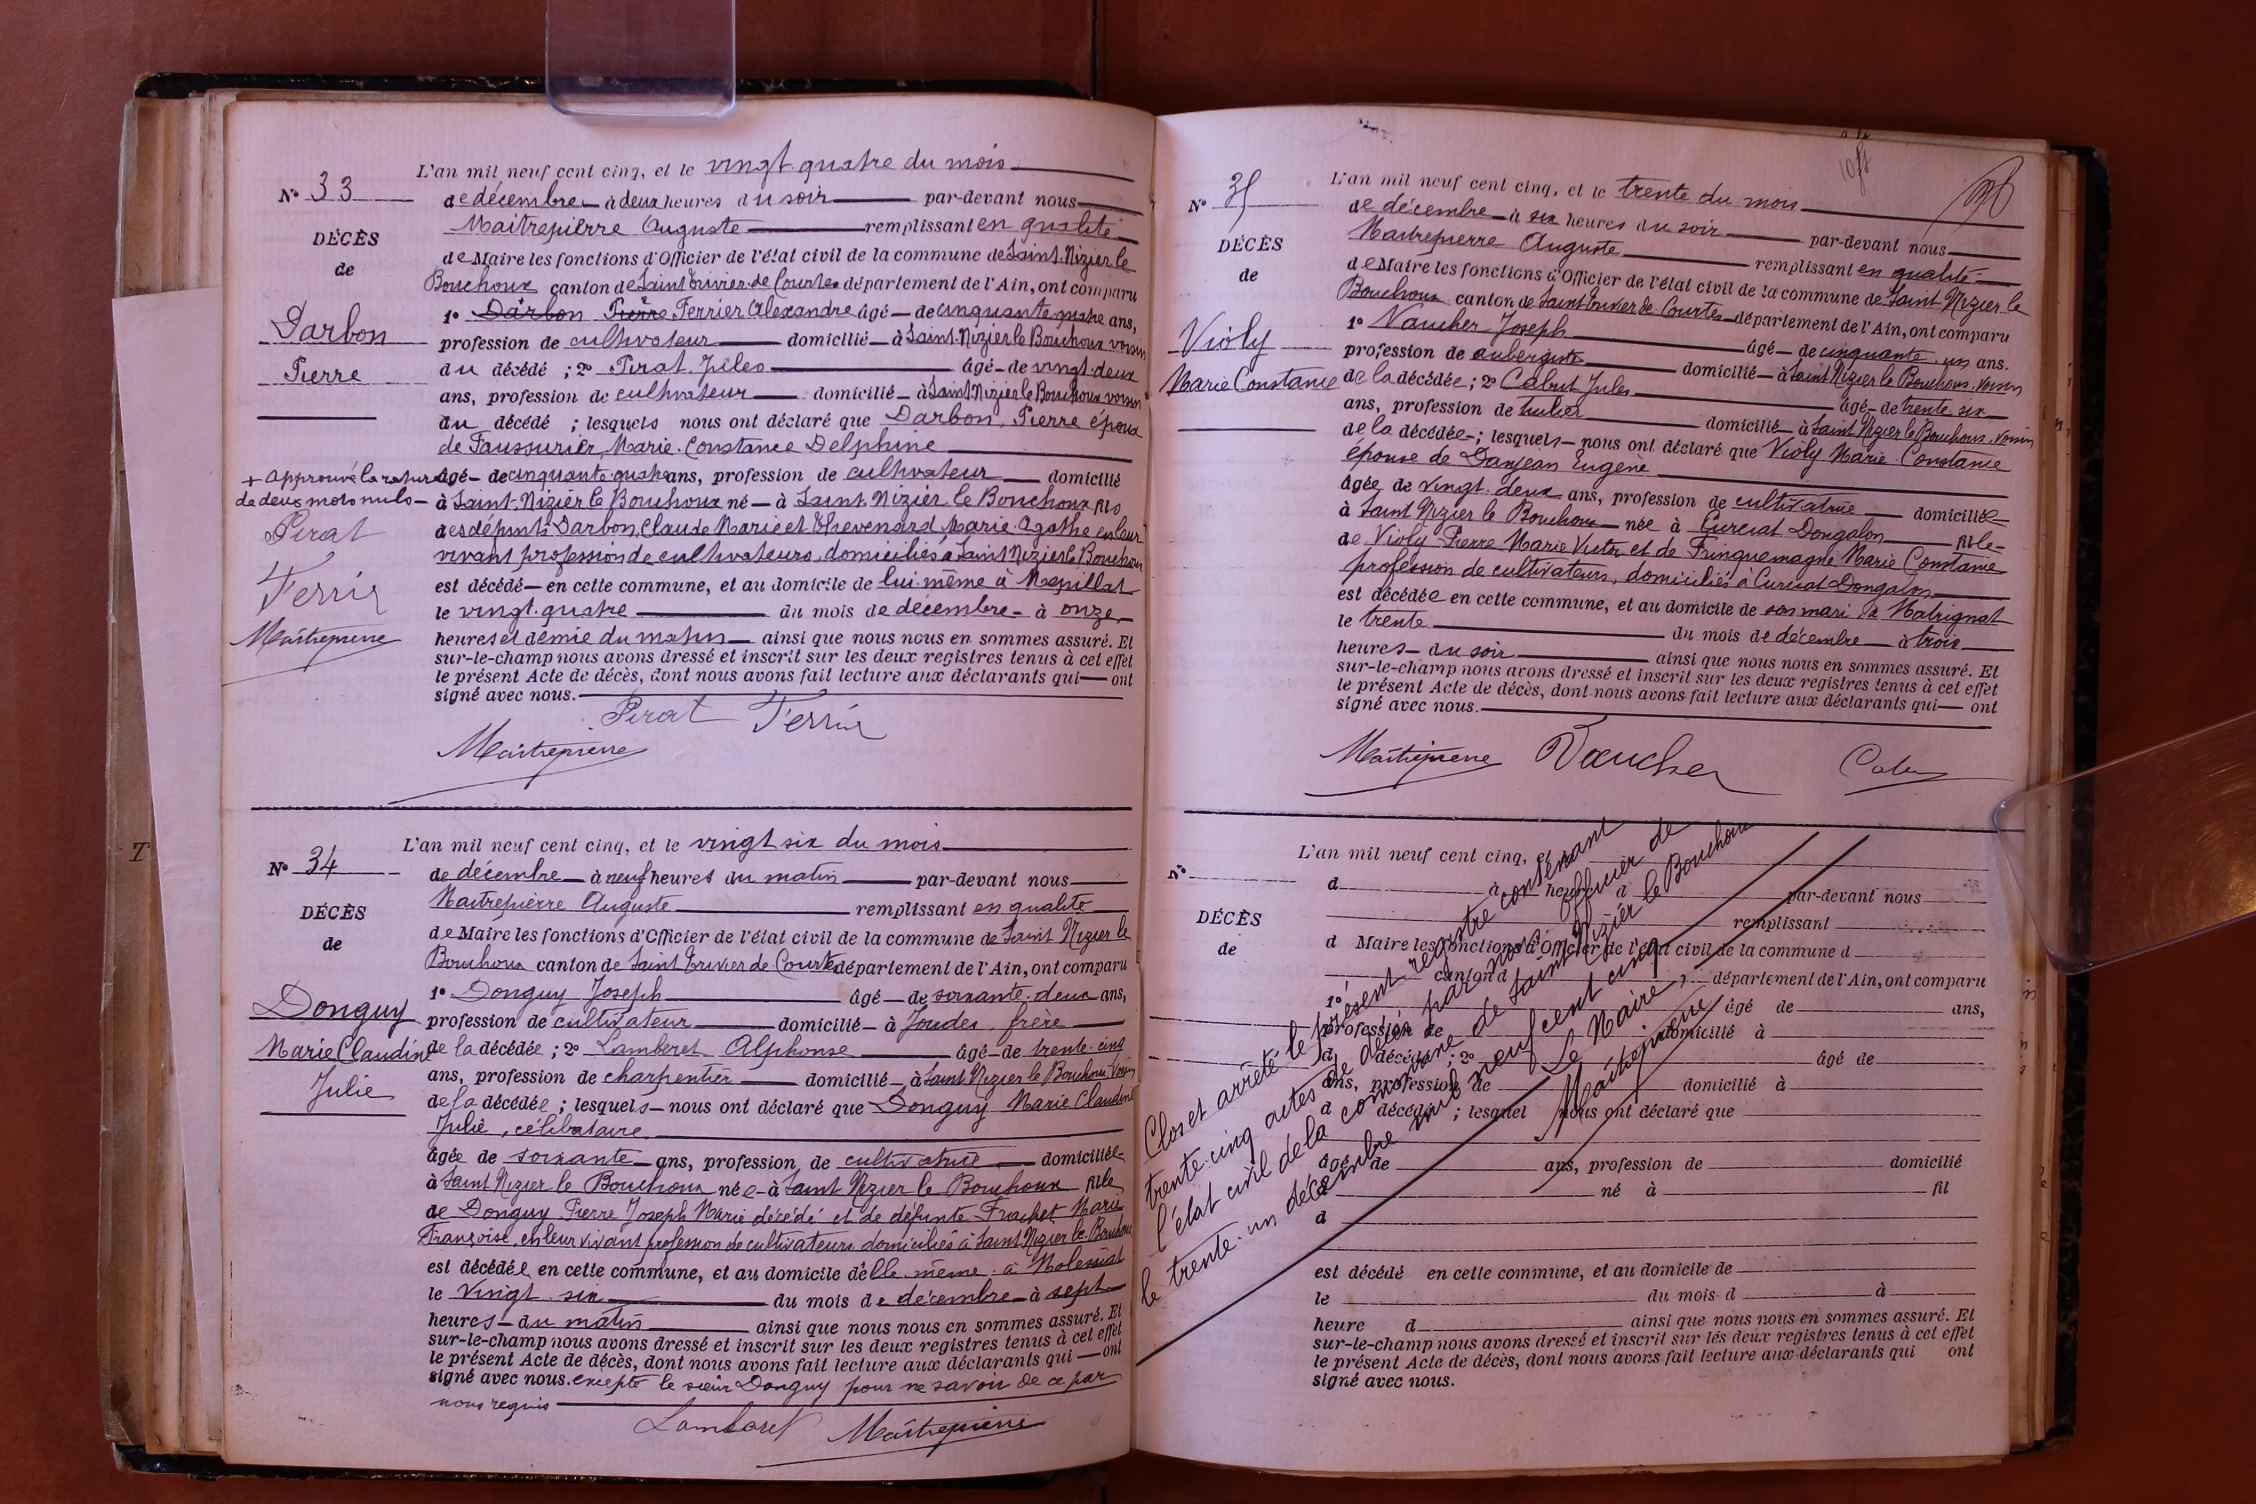 L'an mil neuf cent cinq, et le vingt-quatre du mois
N° 33
de décembre à deux heures du soir par-devant nous
Maitrepierre Auguste remplissant en qualité
DÉCÈS
de Maire les fonctions d'Officier de l'état civil de la commune de Saint-Nizier le
de
Bouchoux canton de Saint Trivier-de Courtes département de l'Ain, ont comparu
1° Darbon Pierre Ferrier Alexandre âgé de cinquante quatre ans,
Darbon
profession de cultivateur domicilié à Saint-Nizier le Bouchoux voisin
Pierre
du décédé ; 2° Pirat Jules âgé de vingt-deux
ans, profession de cultivateur domicilié à Saint-Nizier le Bouchoux voisin
du décédé ; lesquels nous ont déclaré que Darbon, Pierre époux
de Faussurier, Marie-Constance Delphine
+ approuvé la rature
de deux mots nuls
âgé de cinquante-quatre ans, profession de cultivateur domicilié
à Saint-Nizier le Bouchoux né à Saint-Nizier le Bouchoux fils
des défunts Darbon, Claude Marie et Thevenard Marie-Agathe en leur
vivant profession de cultivateurs, domiciliés à Saint Nizier le Bouchoux
est décédé en cette commune, et au domicile de lui-même à
le vingt-quatre du mois de décembre à onze
heures et demie du matin ainsi que nous nous en sommes assuré. Et
sur-le-champ nous avons dressé et inscrit sur les deux registres tenus à cet effet
le présent Acte de décès, dont nous avons fait lecture aux déclarants qui ont
signé avec nous.
Pirat
Ferrier
Maitrepierre
Pirat Ferrier
Maitrepierre
L'an mil neuf cent cinq, et le vingt six du mois
N° 34
de décembre à neuf heures du matin par-devant nous
Maitrepierre Auguste remplissant en qualité
DÉCÈS
de Maire les fonctions d'Officier de l'état civil de la commune de Saint Nizier le
de
Bouchoux canton de Saint Trivier de Courtes département de l'Ain, ont comparu
1° Donguy Joseph âgé de soixante-deux ans,
Donguy
profession de cultivateur domicilié à Joudes, frère
Marie Claudine
de la décédée ; 2° Lamberet Alphonse âgé de trente-cinq
Julie
ans, profession de charpentier domicilié à Saint Nizier le Bouchoux Voisin
de la décédée ; lesquels nous ont déclaré que Donguy Marie Claudine
Julie, célibataire
âgée de soixante ans, profession de cultivatrice domiciliée
à Saint Nizier le Bouchoux née à Saint Nizier le Bouchoux fille
de Donguy Pierre Joseph Marie décédé et de défunte Frachet Marie
Françoise, en leur vivant profession de cultivateurs domiciliés à Saint Nizier le Bouchoux
est décédée en cette commune, et au domicile d'elle même à
le vingt six du mois de décembre à sept
heures du matin ainsi que nous nous en sommes assuré. Et
sur-le-champ nous avons dressé et inscrit sur les deux registres tenus à cet effet
le présent Acte de décès, dont nous avons fait lecture aux déclarants qui ont
signé avec nous. excepté le sieur Donguy pour ne savoir de ce par
nous requis
Lamberet Maitrepierre
L'an mil neuf cent cinq, et le trente du mois
N° 35
de décembre à six heures du soir par-devant nous
Maitrepierre Auguste remplissant en qualité
DÉCÈS
de Maire les fonctions d'Officier de l'état civil de la commune de Saint Nizier le
de
Bouchoux canton de Saint Trivier de Courtes département de l'Ain, ont comparu
1° Vaucher Joseph âgé de cinquante un ans.
Violy
profession de aubergiste domicilié à Saint Nizier le Bouchoux, voisin
Marie Constance
de la décédée ; 2° Cabut Jules âgé de trente six
ans, profession de tuilier domicilié à Saint Nizier le Bouchoux, voisin
de la décédée ; lesquels nous ont déclaré que Violy Marie Constance
épouse de Danjean Eugène
âgée de vingt deux ans, profession de cultivatrice domiciliée
à Saint Nizier le Bouchoux née à Curciat Dongalon fille
de Violy Pierre Marie Victor et de Marie Constance
profession de cultivateurs, domiciliés à Curciat Dongalon
est décédée en cette commune, et au domicile de son mari à Matrignat
le trente du mois de décembre à trois
heures du soir ainsi que nous nous en sommes assuré. Et
sur-le-champ nous avons dressé et inscrit sur les deux registres tenus à cet effet
le présent Acte de décès, dont nous avons fait lecture aux déclarants qui ont
signé avec nous.
Maitrepierre Vaucher
L'an mil neuf cent cinq, et
N°
d à heure d par-devant nous
remplissant
DÉCÈS
d Maire les fonctions d'Officier de l'état civil de la commune d
de
canton d département de l'Ain, ont comparu
1° âgé de ans,
profession de domicilié à
d décédé ; 2° âgé de
ans, profession de domicilié à
d décédé ; lesquel nous ont déclaré que
âgé de ans, profession de domicilié
à né à fil
d
est décédé en cette commune, et au domicile de
le du mois d à
heure d ainsi que nous nous en sommes assuré. Et
sur-le-champ nous avons dressé et inscrit sur les deux registres tenus à cet effet
le présent Acte de décès, dont nous avons fait lecture aux déclarants qui ont
signé avec nous.
Clos et arrêté le présent registre contenant
trente-cinq actes de décès par nous officier de
l'état civil de la commune de Saint Nizier le Bouchoux
le trente-un décembre mil neuf cent cinq
Le Maire,
Maitrepierre